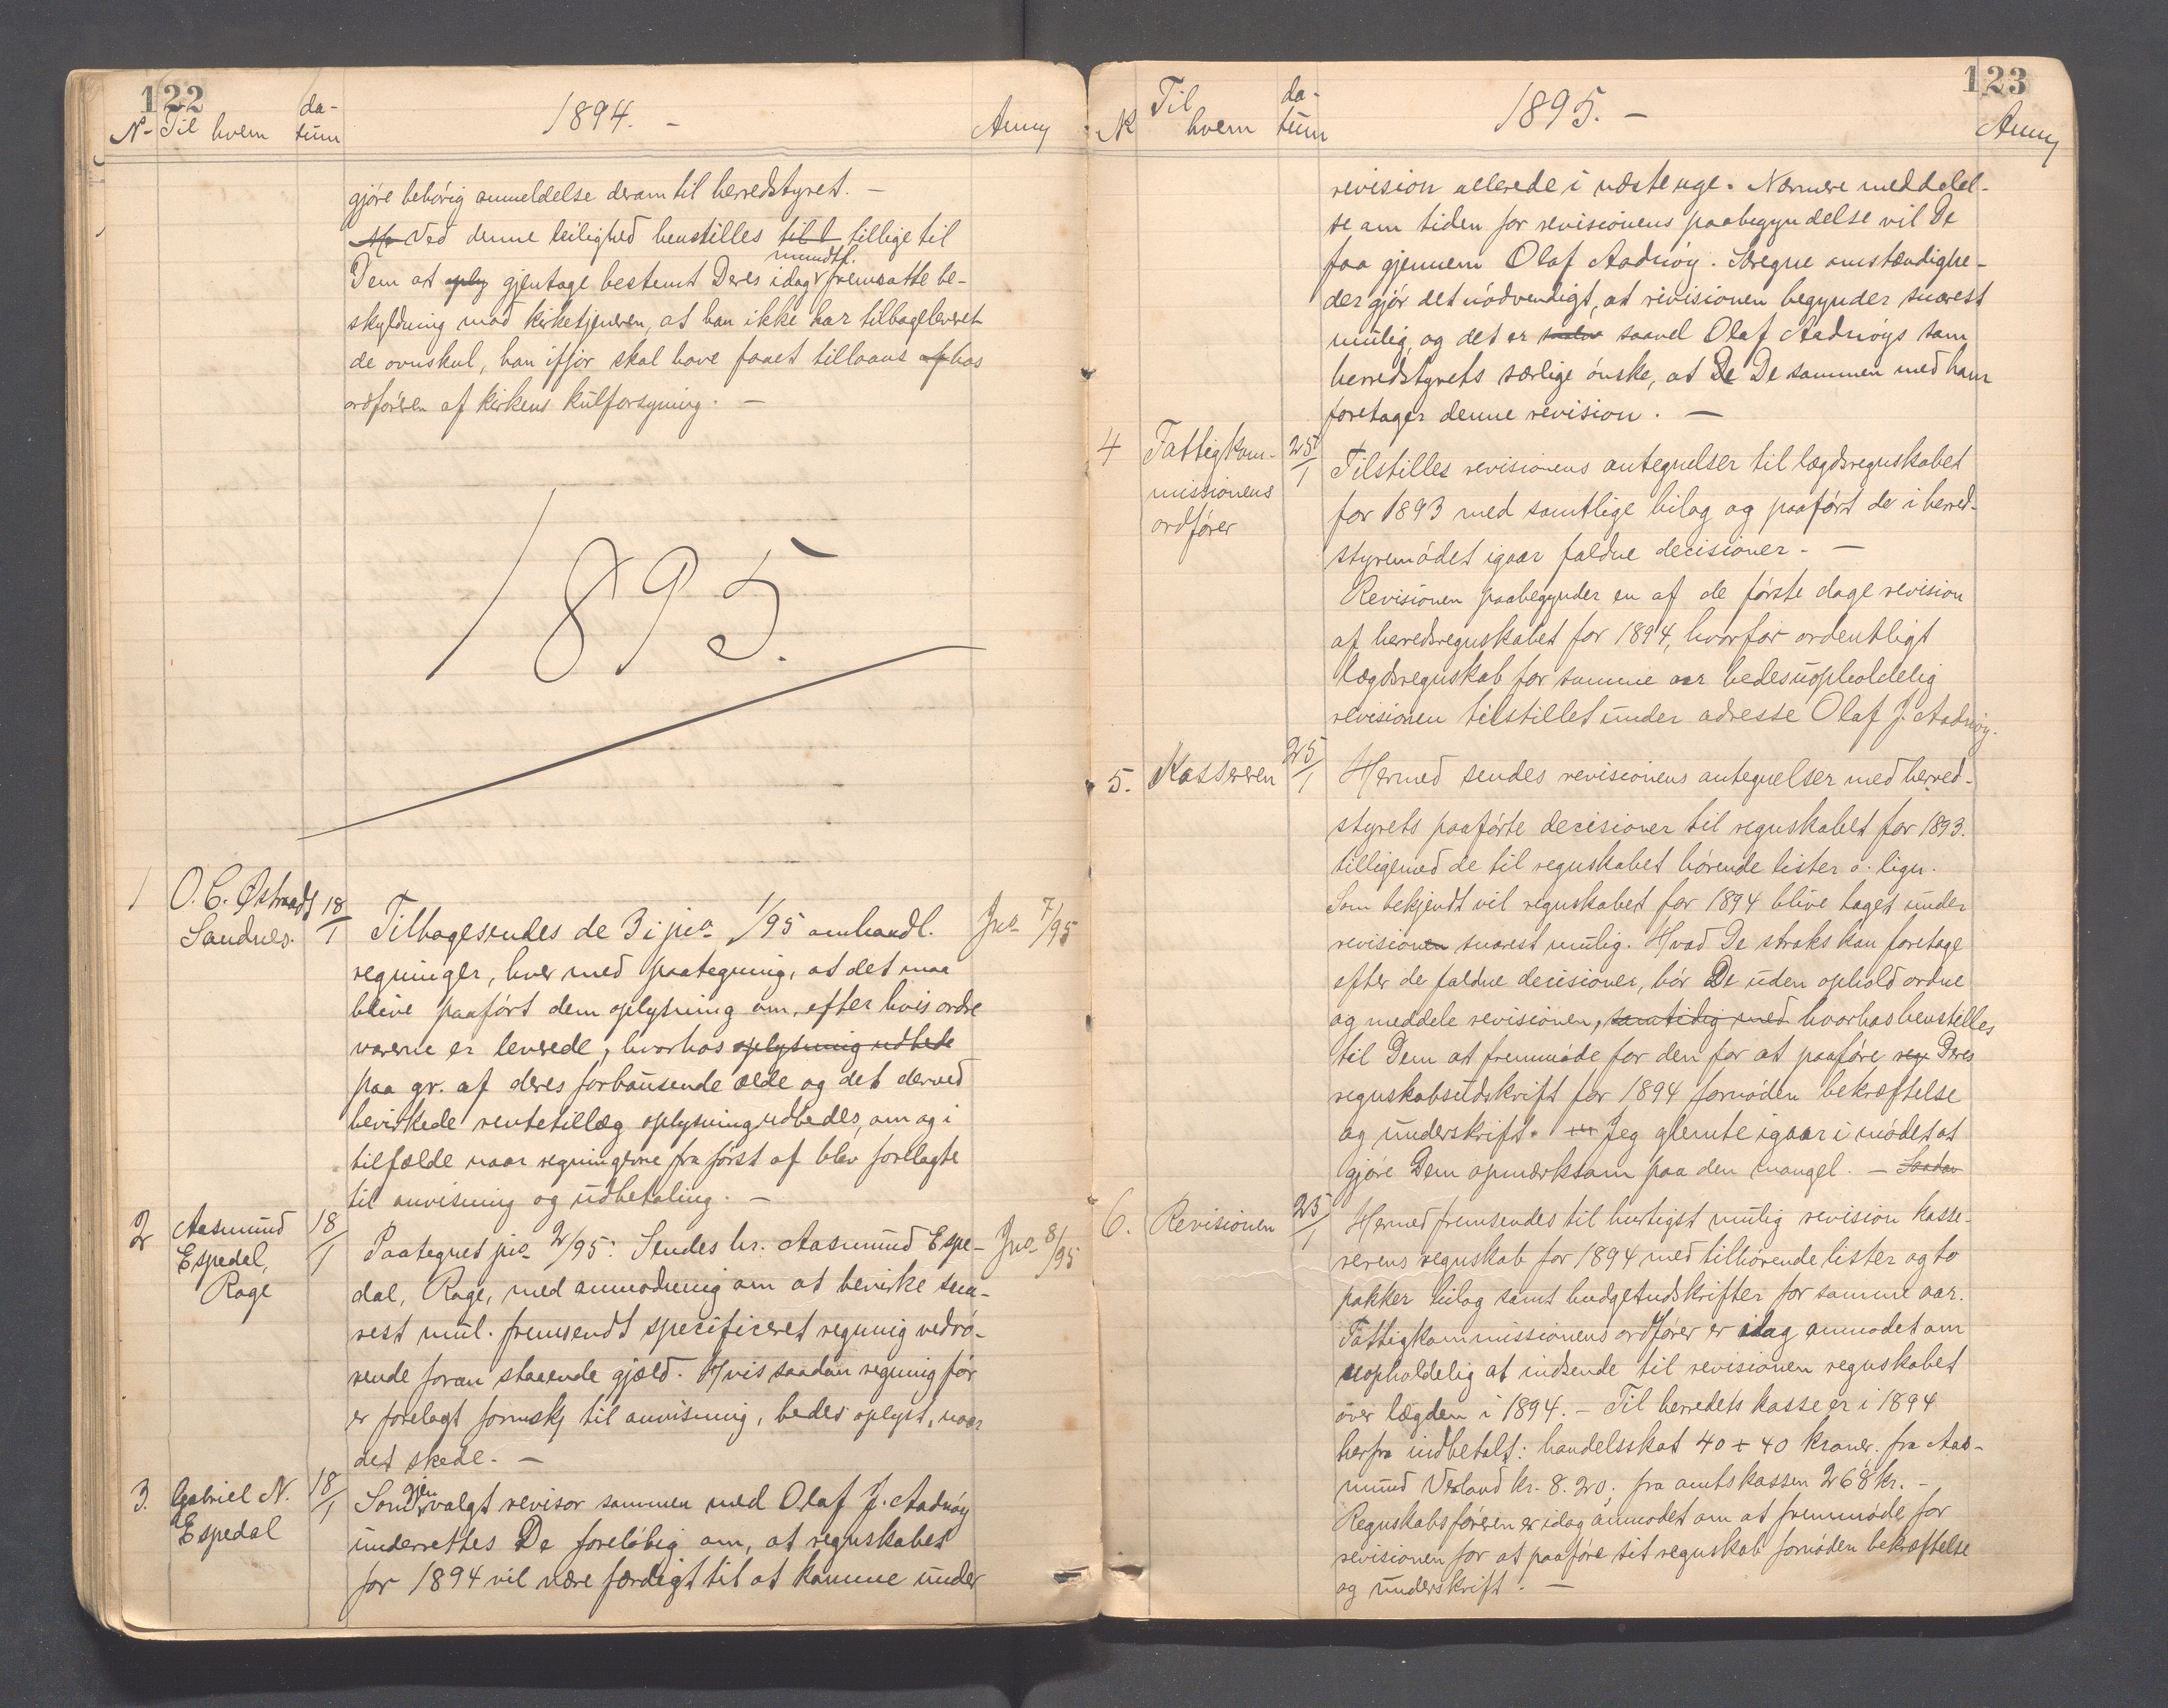 122
N- Til hvem datum 1894. - Anm
gjøre behørig anmeldelse derom til herredstyret. —
Ved denne leilighed henstilles til l tillige til
mundtl.
Dem at oply gjentage bestemt Deres idag fremsatte be-
skyldning mod kirketjeneren, at han ikke har tilbageleveret
de ovnskul, han ifjor skal have faaet tillaans af hos
ordføreren af kirkens kulforsyning. —
1895.
1 O. C. Østraadt 18/1 Tilbagesendes de 3 i jno 1/95 omhandl. Jno 7/95
Sandnes.
regninger, hver med paategning, at det maa
blive paaført dem oplysning om, efter hvis ordre
varerne er leverede, hvorhos oplysning udbede
paa gr. af deres forbausende ælde og det derved
bevirkede rentetillæg oplysning udbedes, om og i
tilfælde naar regningerne fra først af blev forelagte
til anvisning og udbetaling. —
2 Aasmund 18/1 Paategnet jno 2/95: Sendes hr. Aasmund Espe- Jno 8/95
Espedal,
Rage
dal, Rage, med anmodning om at bevirke sna-
rest mul. fremsendt specificeret regning vedrø-
rende foran staaende gjæld. Hvis saadan regning før
er forelagt formskj til anvisning, bedes oplyst, naar
det skede. —
3. Gabriel N. 18/1 Som gjenvalgt revisor sammen med Olaf J. Aadnøy
Espedal
underrettes De foreløbig om, at regnskabet
for 1894 vil være færdigt til at komme under
123
N Til hvem datum 1895. — Anm
revision allerede i næste uge. Nærmere meddelel-
se om tiden for revisionens paabegyndelse vil De
faa gjennem Olaf Aadnøy. Særegne omstændighe-
der gjør det nødvendigt, at revisionen begynder snarest
mulig, og det er saavel Olaf Aadnøys som
herredstyrets særlige ønske, at De De sammen med ham
foretager denne revision. —
4 Fattigkom- 25/1 Tilstilles revisionens antegnelser til lægdsregnskabet
missionens
ordfører
for 1893 med samtlige bilag og paaført de i herred-
styremødet igaar faldne decisioner. —
Revisionen paabegynder en af de første dage revision
af herredsregnskabet for 1894, hvorfor ordentligt
lægdsregnskab for samme aar bedes uopholdelig
revisionen tilstillet under adresse Olaf J. Aadnøy.
5. Kassereren 25/1 Hermed sendes revisionens antegnelser med herred-
styrets paaførte decisioner til regnskabet for 1893.
tilligemed de til regnskabet hørende lister o. lign.
Som bekjendt vil regnskabet for 1894 blive taget under
revisionen snarest mulig. Hvad De straks kan foretage
efter de faldne decisioner, bør De uden ophold ordne
og meddele revisionen, samtidig med hvorhos henstilles
til Dem at fremmøde for den for at paaføre reg Deres
regnskabsudskrift for 1894 fornøden bekræftelse
og underskrift. Jeg glemte igaar i mødet at
gjøre Dem opmærksom paa den mangel. — Saadan
6. Revisionen 25/1 Hermed fremsendes til hurtigst mulig revision kasse-
rerens regnskab for 1894 med tilhørende lister og to
pakker bilag samt budgetudskrifter for samme aar.
Fattigkommissionens ordfører er idag anmodet om
uopholdelig at indsende til revisionen regnskabet
over lægden i 1894. — Til herredets kasse er i 1894
herfra indbetalt: handelsskat 40 + 40 kroner. fra Aas-
mund Veland kr. 8.20; fra amtskassen 268 kr. —
Regnskabsføreren er idag anmodet om at fremmøde for
revisionen for at paaføre sit regnskab fornøden bekræftelse
og underskrift. —